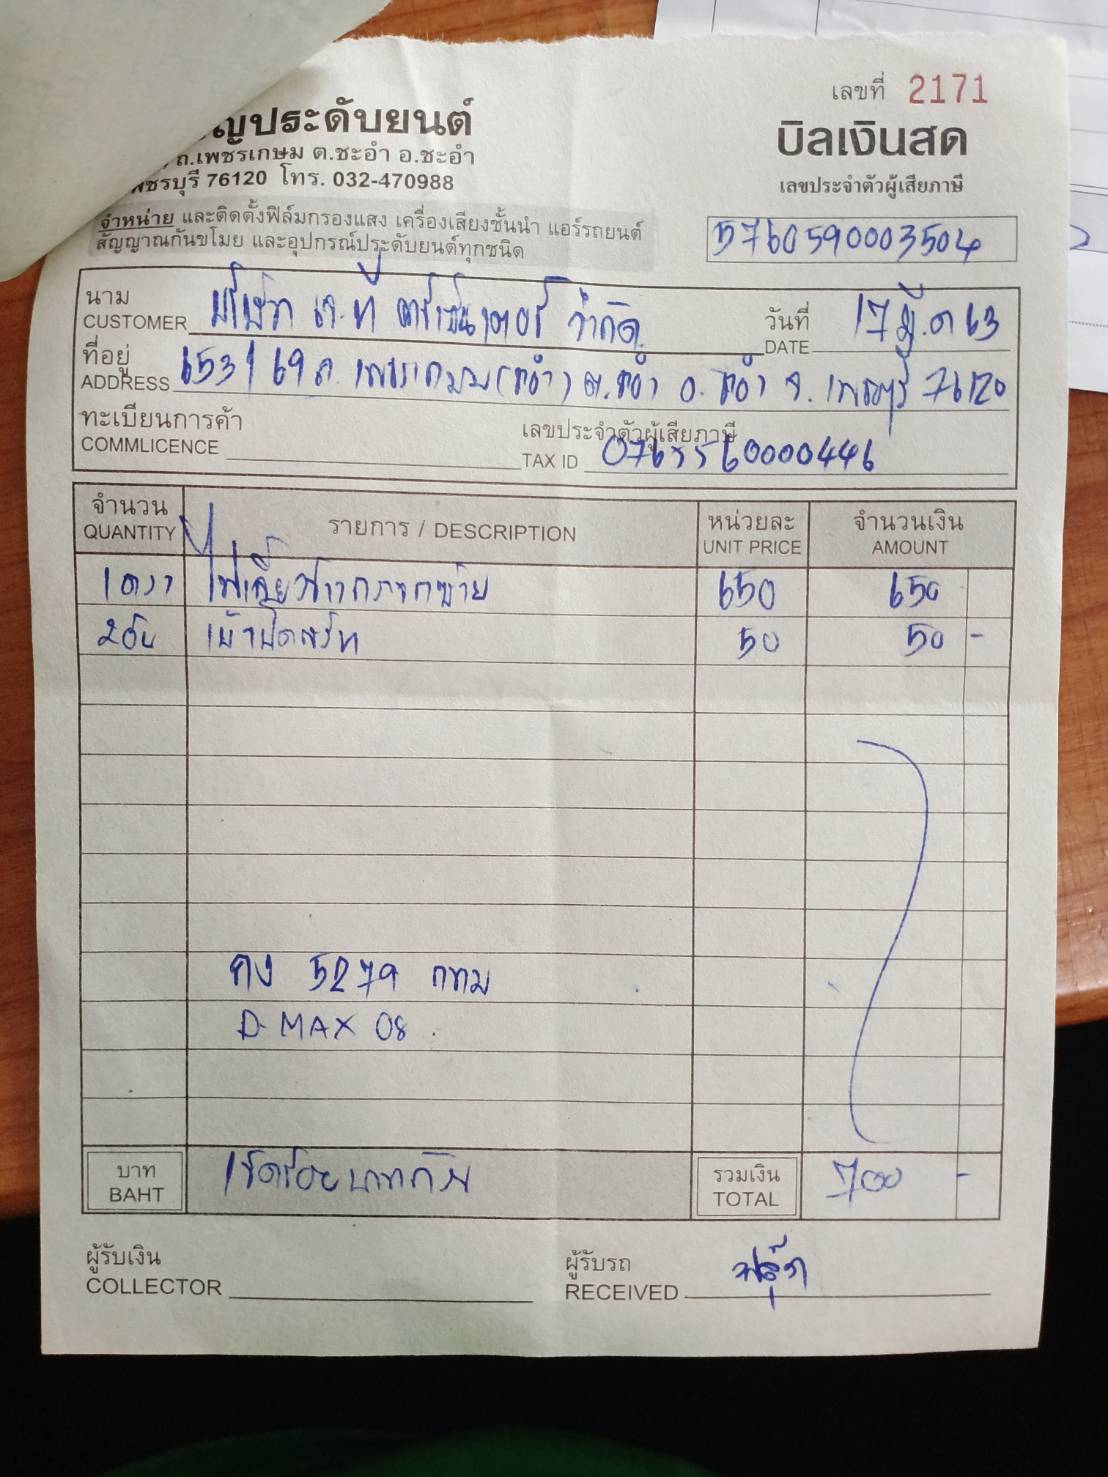 เลขที่ 2171
ญประดับยนต์
ถ.เพชรเกษม ต.ชะอำ อ.ชะอำ
เพชรบุรี 76120 โทร. 032-470988
บิลเงินสด
เลขประจำตัวผู้เสียภาษี
5760590003504
จำหน่าย และติดตั้งฟิล์มกรองแสง เครื่องเสียงชั้นนำ แอร์รถยนต์
สัญญาณกันขโมย และอุปกรณ์ประดับยนต์ทุกชนิด
นาม
CUSTOMER บริษัท เจ.ที จำกัด
วันที่
DATE 17 มี.ค 63
ที่อยู่
ADDRESS 653/69 ถ.เพชรเกษม (ชะอำ) ต.ชะอำ อ.ชะอำ จ.เพชรบุรี 76120
ทะเบียนการค้า
COMMLICENCE
เลขประจำตัวผู้เสียภาษี
TAX ID 0765560000446
จำนวน
QUANTITY
รายการ / DESCRIPTION
หน่วยละ
UNIT PRICE
จำนวนเงิน
AMOUNT
1 ดวง ไฟเลี้ยว 650 650
2 อัน 50 50 -
5279 กทม
D-MAX 08
บาท
BAHT
เจ็ดร้อยบาทถ้วน
รวมเงิน
TOTAL
700 -
ผู้รับเงิน
COLLECTOR
ผู้รับรถ
RECEIVED